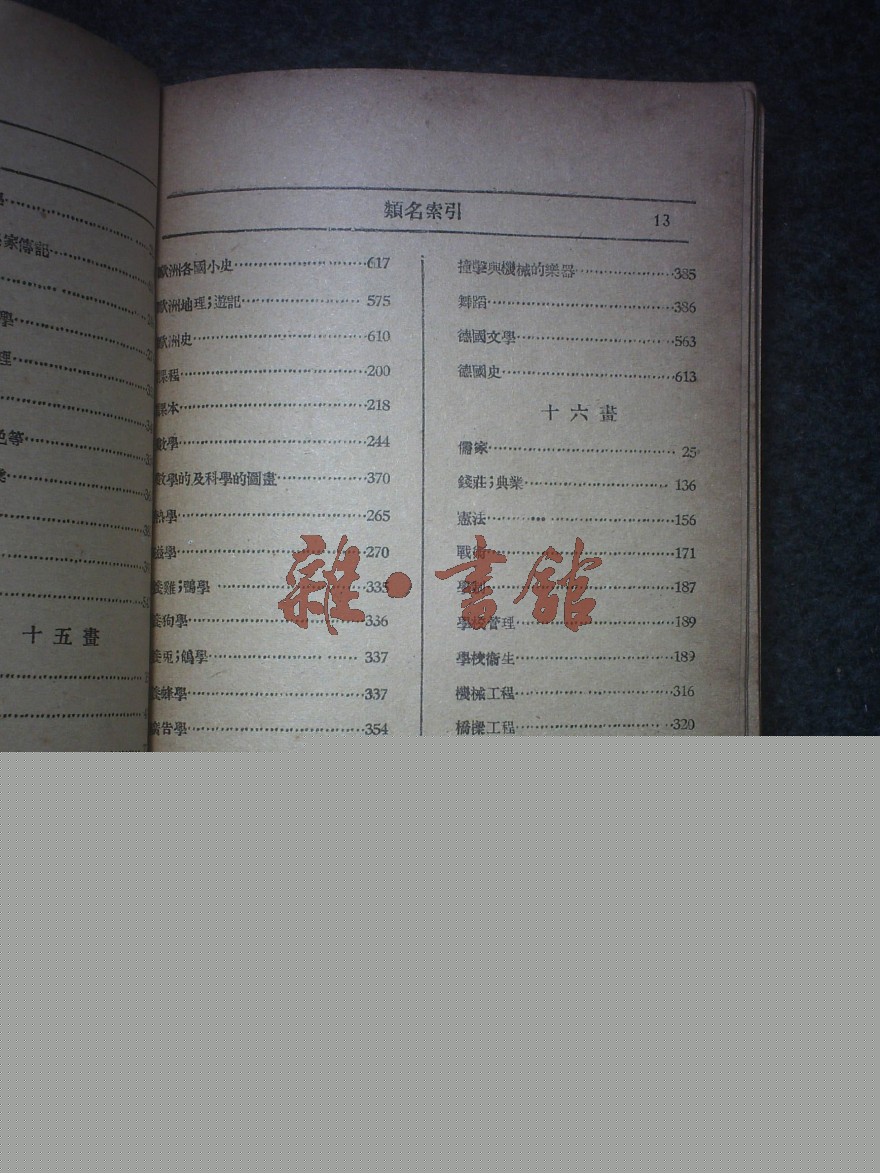 家傳記
學
理
色等
十五畫
類名索引 13
歐洲各國小史 617
歐洲地理;遊記 575
歐洲史 610
課程 200
課本 218
數學 244
數學的及科學的圖畫 370
熱學 265
磁學 270
養雞;鴨學 335
養狗學 336
養兎;鴿學 337
養蜂學 337
廣告學 354
撞擊與機械的樂器 385
舞蹈 386
德國文學 563
德國史 613
十六畫
儒家 25
錢莊;典業 136
憲法 156
戰術 171
學制 187
學校管理 189
學校衛生 189
機械工程 316
橋樑工程 320
雜·書館